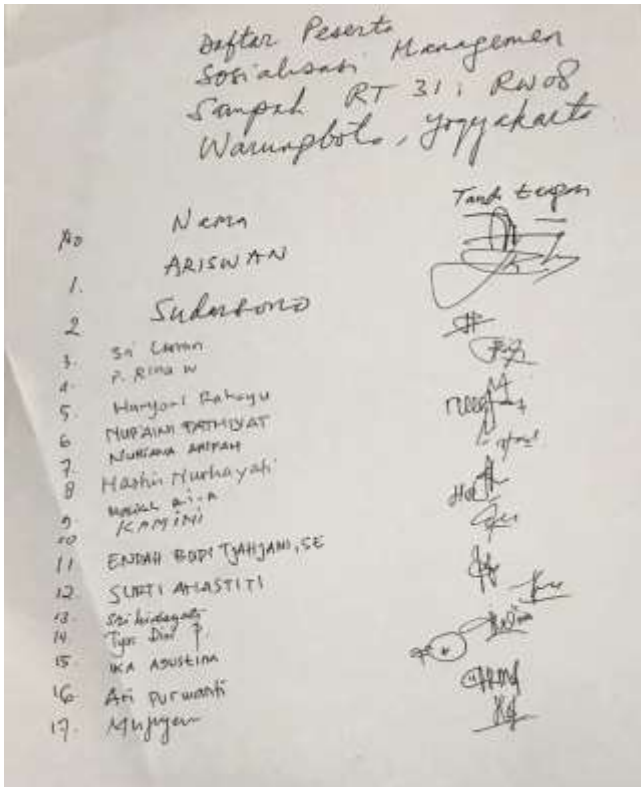 Daftar Peserta
Sosialisasi Managemen
Sampah RT 31, RW 08
Warungboto, Yogyakarta
No Nama Tanda tangan
1. ARISWAN
2 Sudarsono
3. Sri
4. P. RINA W
5. Haryani Rahayu
6 NURAINI FATMIYAT
7. NURIANA ARIFAH
8 Hashii Nurhayati
9
10 KAMINI
11 ENDAH BUDI TJAHJANI, SE
12. SURTI ATLASTITI
13. Sri hidayati
14. Tyas Dini P
15. IKA AGUSTINA
16 Ari purwanti
17. Mujiyem